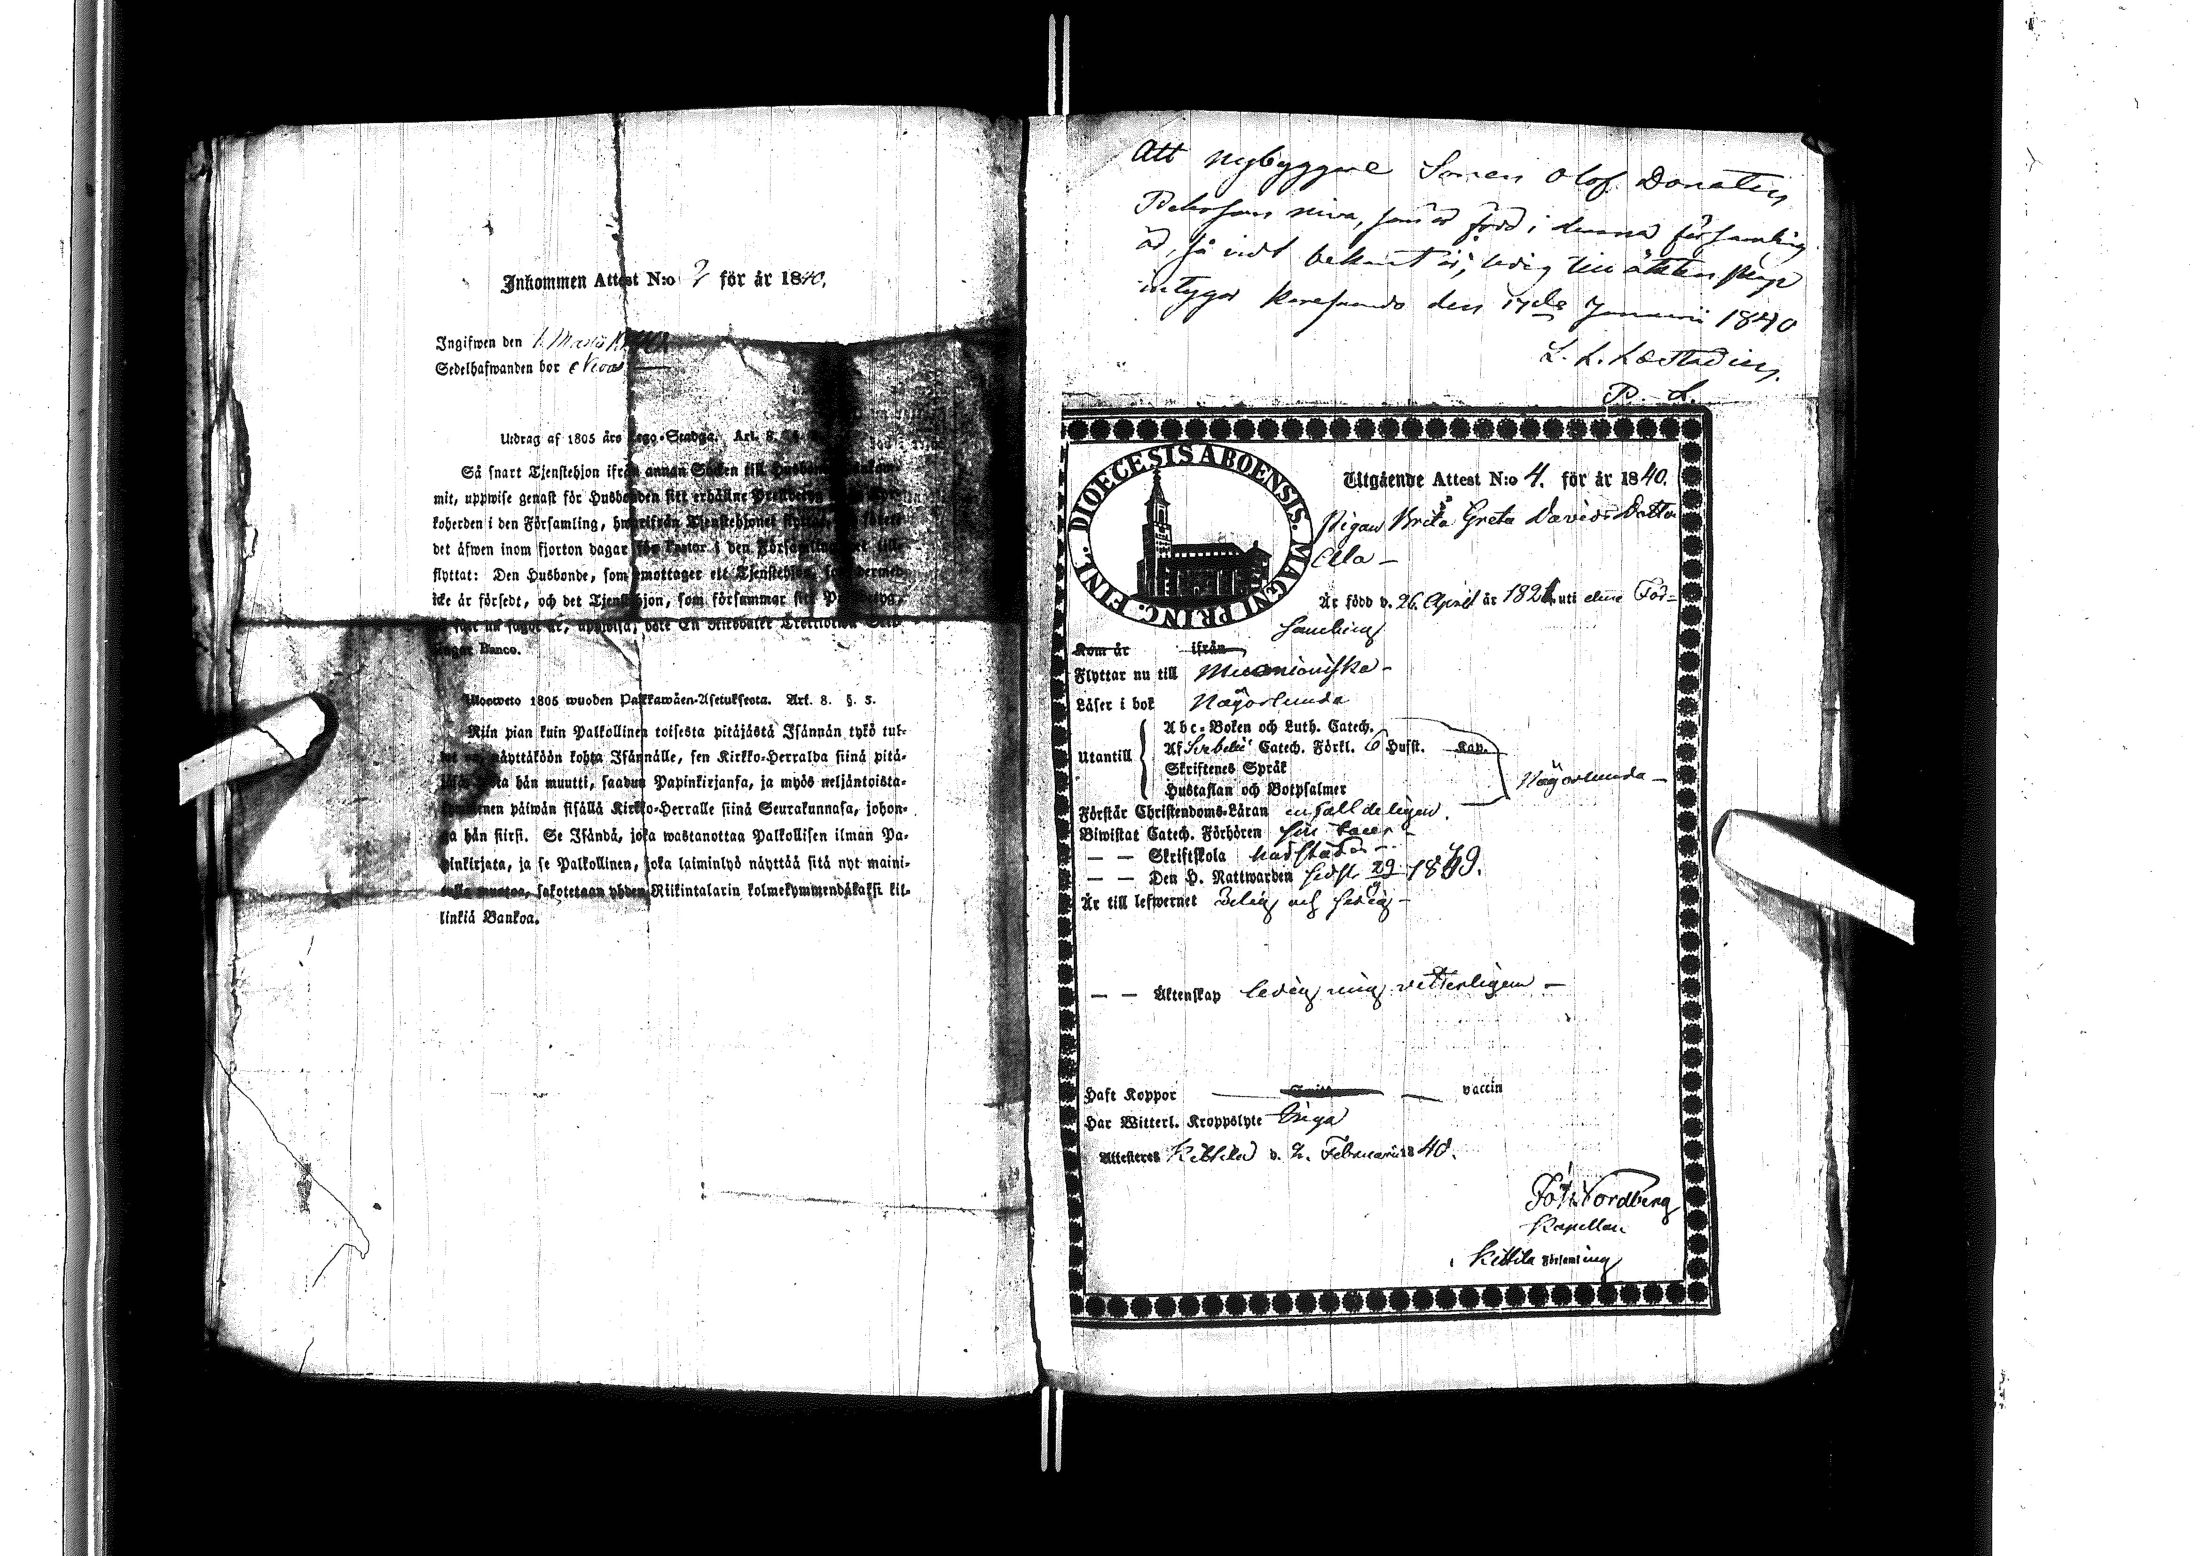 Inkommen Attest N:o 2 för år 1840.
Ingifwen den 1 Mars
Sedelhafwanden bor
Utdrag af 1805 års Lego-Stadga. Art. 8.
Så snart Tjenstehjon ifrån annan Socken till Husbonde
mit, uppwise genast för Husbonden sitt erhållne
koherden i den Församling, hwarifrån Tjenstehjonet flyttat,
det åfwen inom fjorton dagar för Pastor i den Församling
flyttat: Den Husbonde, som emottager ett Tjenstehjon, dermed
icke är försedt, och det Tjenstehjon, som försummar sitt
Banco.
Uloweto 1805 wuoden Palkkawäen-Asetuksesta. Art. 8. §. 3.
Niin pian kuin Palkollinen toisesta pitäjästä Isännän tykö tul-
näyttäköön kohta Isännälle, sen Kirkko-Herralda siinä pitä-
hän muutti, saadun Papinkirjansa, ja myös neljäntoista-
päiwän sisällä Kirkko-Herralle siinä Seurakunnasa, johon-
ga hän siirsi. Se Isändä, joka wastanottaa Palkollisen ilman Pa-
pinkirjata, ja se Palkollinen, joka laiminlyö näyttää sitä nyt maini-
muotoa, sakotetaan yhden Riikintalarin kolmekymmendäkaksi kil-
linkiä Bankoa.
Att nybyggare Sonen Olof Donatus
Pehrsson niva, som är född i denna församling
äd, så vidt bekant är, ledig till äktenskap
intygar Karesuando den 17de Januarii 1840
L. L. Læstadius.
P. L.
DIOECESIS ABOENSIS. MAGNI PRINC. FINL.
Utgående Attest N:o 4. för år 1840.
Pigan Brita Greta Davids Dotter
Är född d. 26 April år 1821 uti denne För-
samling
Kom år ifrån
Flyttar nu till Muonioniska -
Läser i bok Någorlunda
Utantill
Abc-Boken och Luth. Catech.
Af Svebelii Catech. Förkl. 6 Hufst. Kap.
Skriftenes Språk
Hustaflan och Botpsalmer
Någorlunda -
Förstår Christendoms-Läran enfalldeligen.
Biwistat Catech. Förhören
— — Skriftskola
— — Den H. Nattwarden sidst 29 1839.
Är till lefwernet ärlig och sedig -
— — Äktenskap ledig mig vetterligen -
Haft Koppor vaccin
Har Witterl. Kroppslyte Inga
Attesteres Kittilä d. 2. Februarii 1840.
Joh. Nordberg
Kapellan
i Kittilä Församling